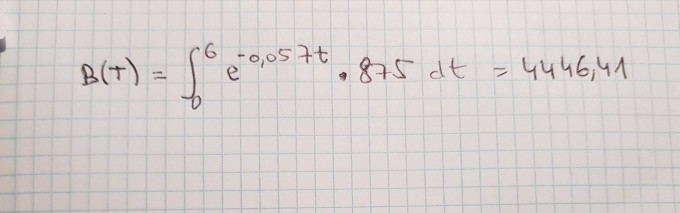 B(T) = ∫₀⁶ e^{-0,057t} · 875 dt = 4446,41